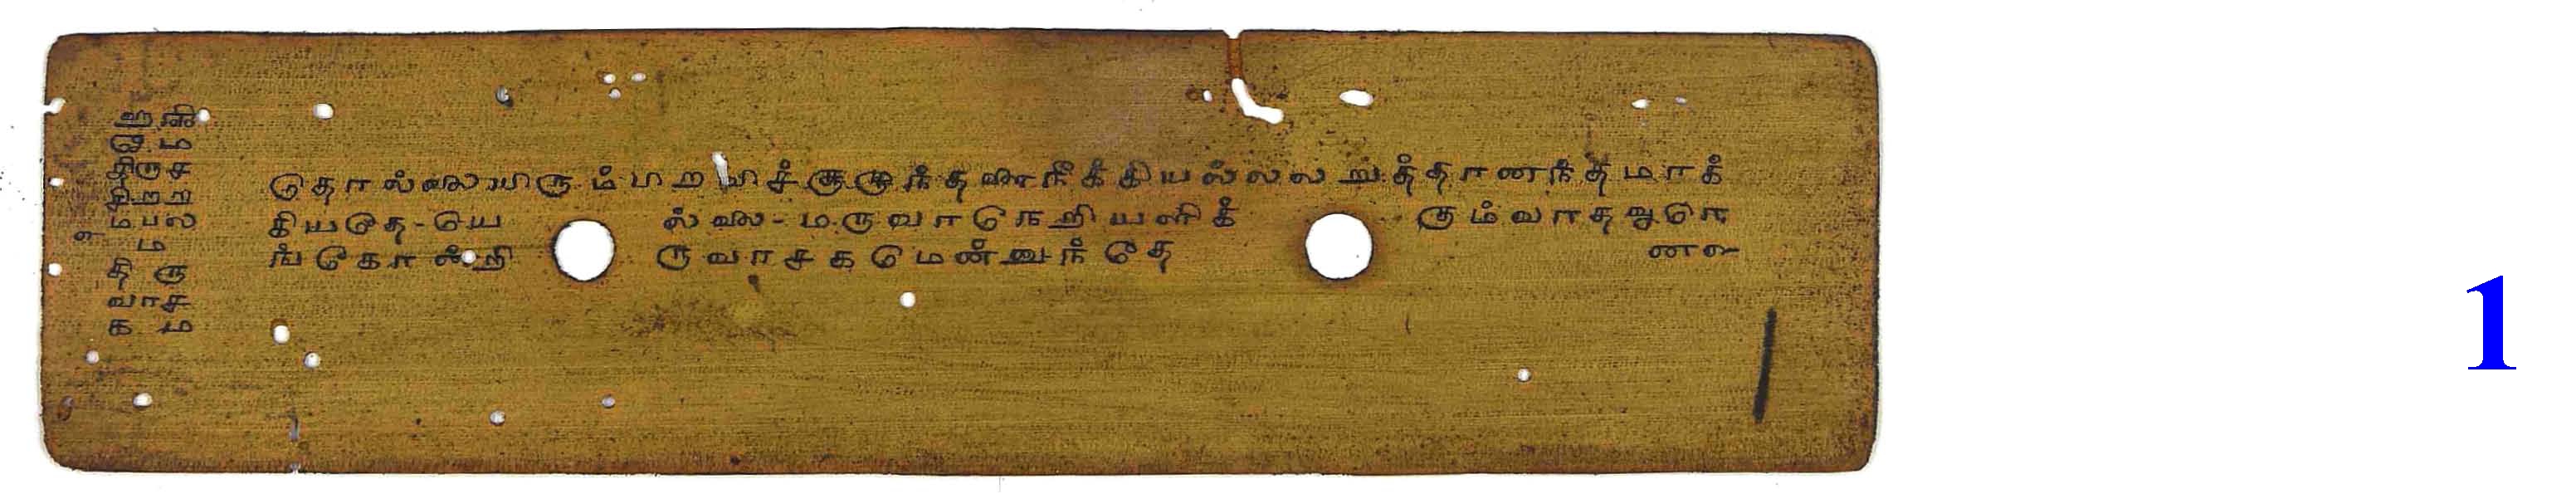 ஹரி
ஓம
திருச
சிறற
ம்பல
ம
திரு
வாச
கம
தொல்லையிரும்பிறவிச்சூழுந்தளைநீக்கியல்லலறுத்தானந்தமாக்
கியதே-யெல்லை-மருவாநெறியளிக்கும்வாதவூரெ
ங்கோன்றிருவாசகமென்னுந்தே ன
1